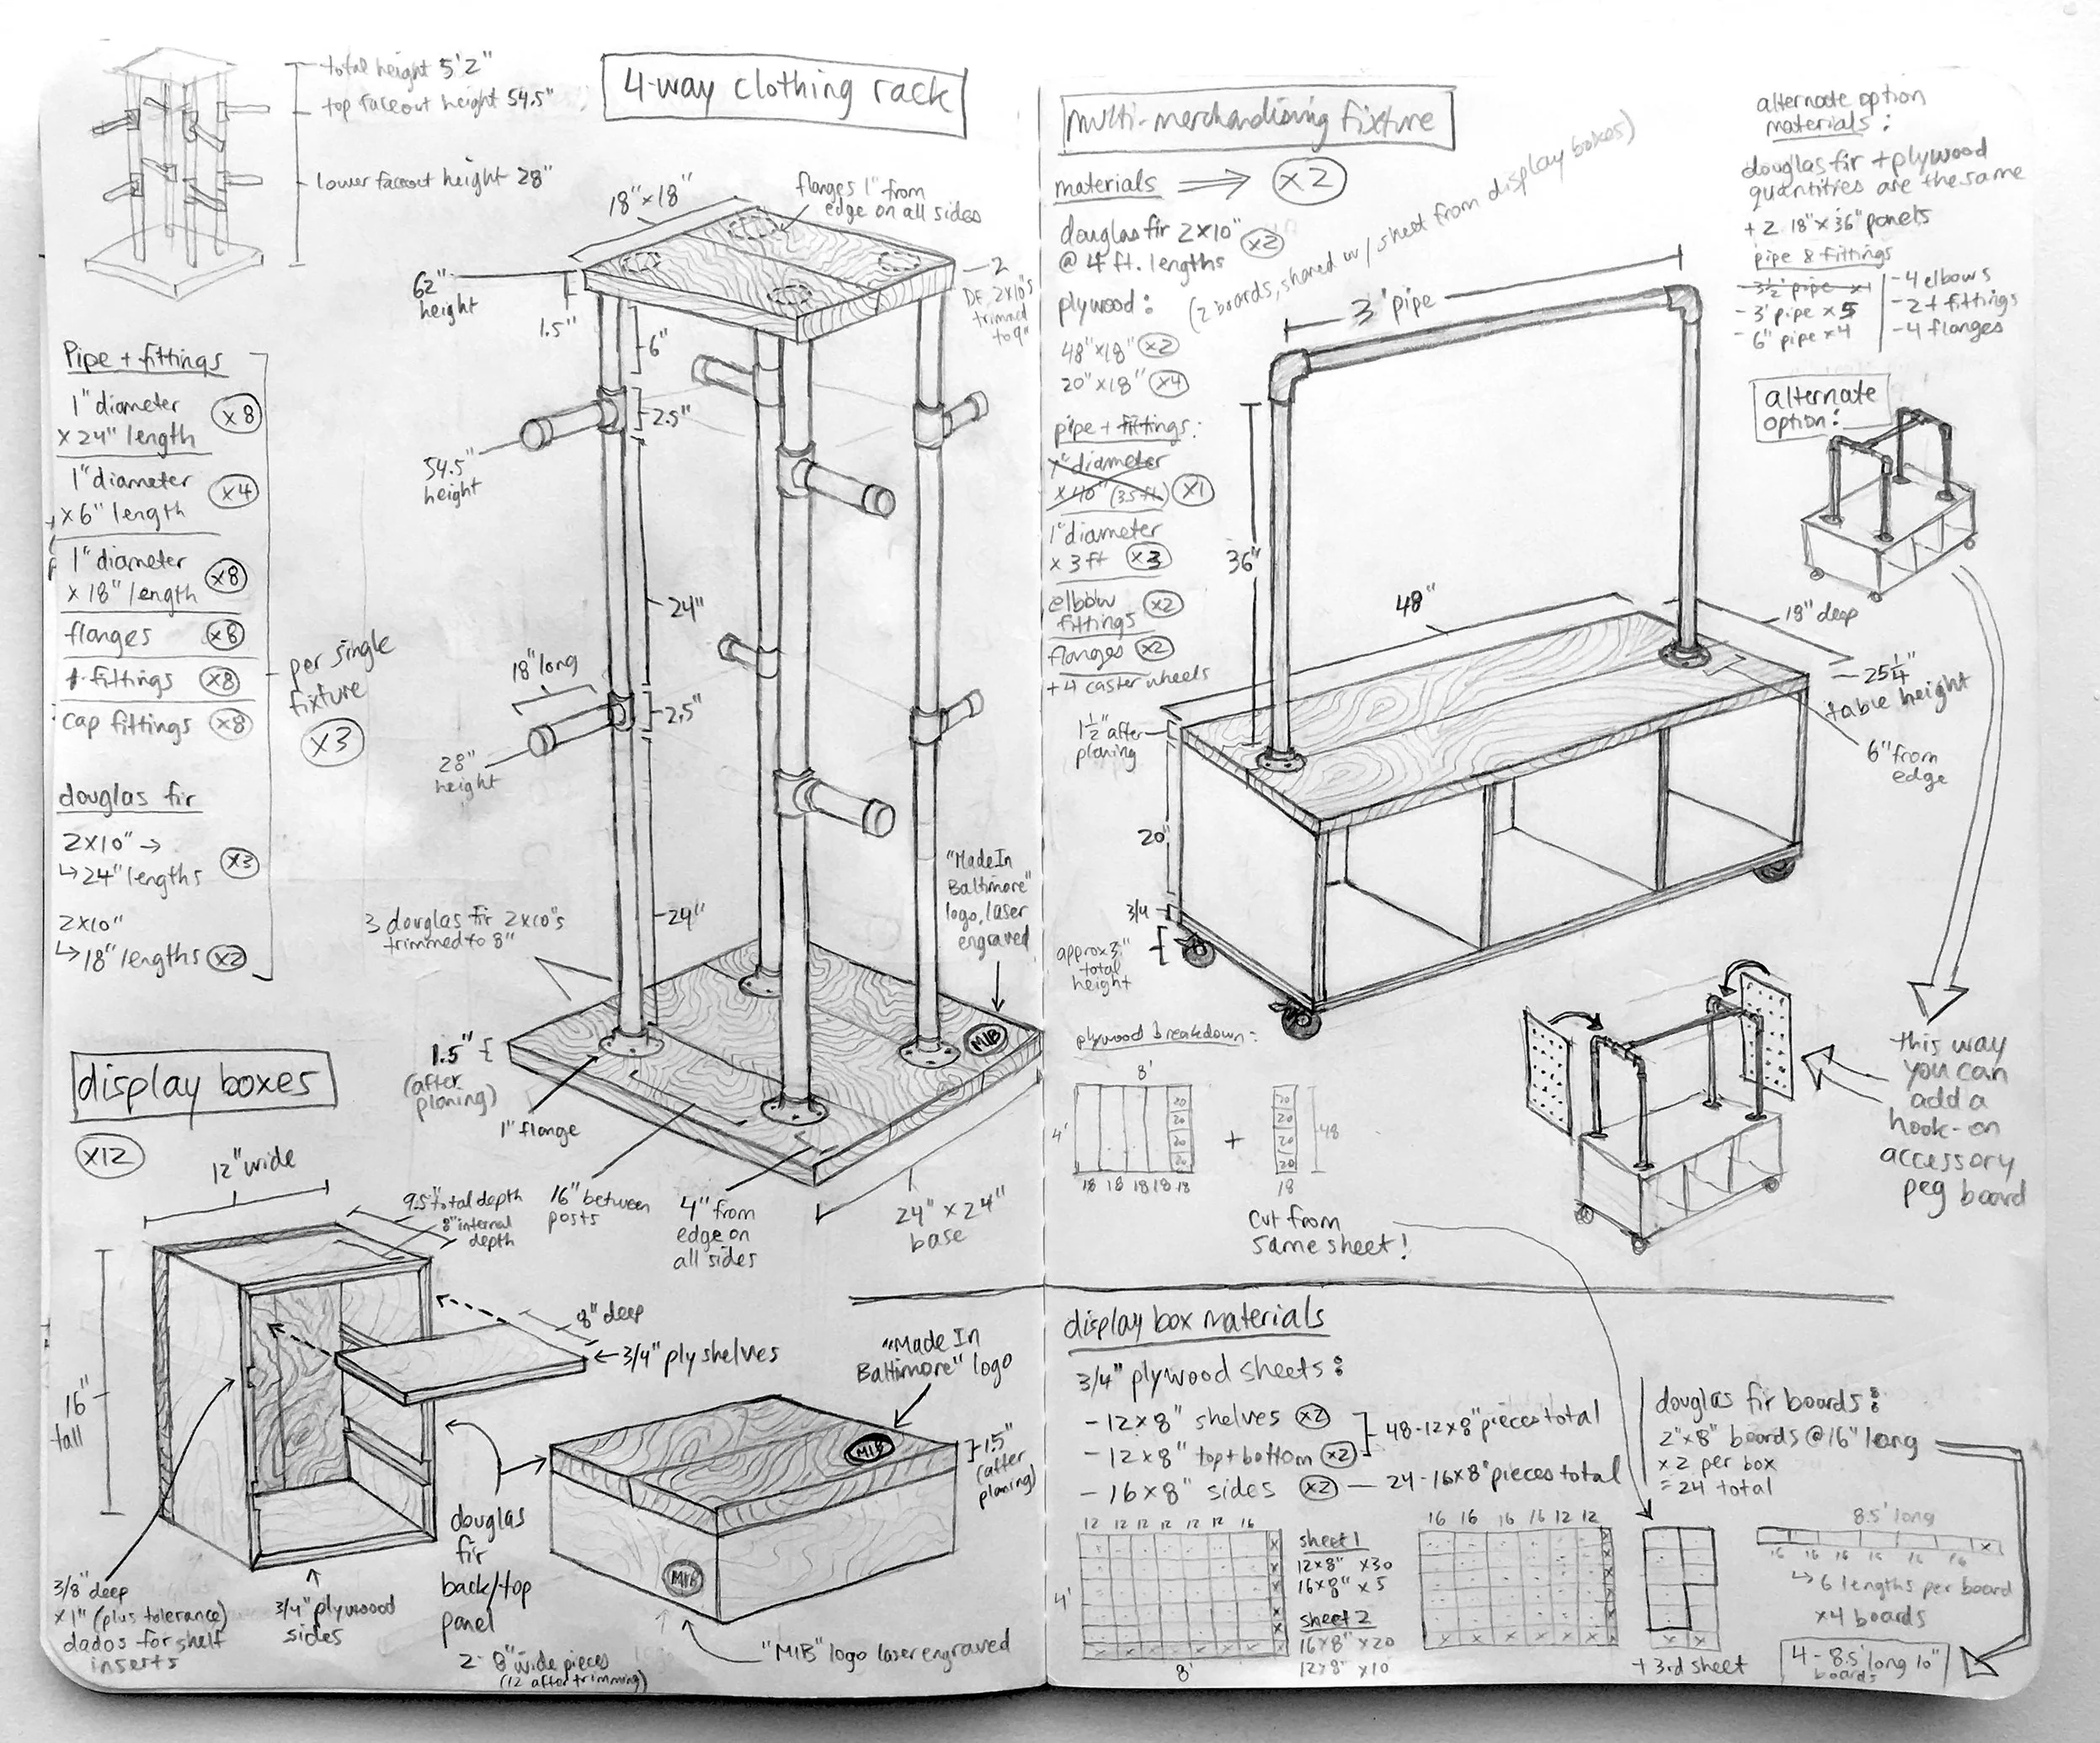 total height 5'2"
top faceout height 54.5"
lower faceout height 28"
4-way clothing rack
18"x18"
flanges 1" from
edge on all sides
62"
height
1.5"
6"
2
DF 2x10's
trimmed
to 9"
2.5"
54.5"
height
24"
18" long
2.5"
28"
height
24"
3 douglas fir 2x10's
trimmed to 8"
"Made In
Baltimore"
logo, laser
engraved
MIB
1.5"
(after
planing)
1" flange
16" between
posts
4" from
edge on
all sides
24" x 24"
base
Pipe + fittings
1" diameter
x 24" length
x8
1" diameter
x 6" length
x4
1" diameter
x 18" length
x8
flanges x8
t-fittings x8
cap fittings x8
per single
fixture
x3
douglas fir
2x10" →
↳ 24" lengths
x3
2x10"
↳ 18" lengths x2
display boxes
x12
12" wide
9.5" total depth
8" internal
depth
16"
tall
8" deep
← 3/4" ply shelves
"Made In
Baltimore" logo
MIB
1.5"
(after
planing)
MIB
3/8" deep
x 1" (plus tolerance)
dados for shelf
inserts
3/4" plywood
sides
douglas
fir
back/top
panel
2- 8" wide pieces
(12 after trimming)
"MIB" logo laser engraved
multi-merchandising fixture
materials ⟹ x2
douglas fir 2x10" x2
@ 4 ft. lengths
plywood:
(2 boards, shared w/ sheet from display boxes)
48"x18" x2
20"x18" x4
pipe + fittings:
1" diameter
x 40" (3.5 ft.) x1
1" diameter
x 3 ft x3
elbow
fittings x2
flanges x2
+ 4 caster wheels
3' pipe
36"
48"
18" deep
25 1/4"
table height
6" from
edge
1 1/2" after
planing
20"
3/4
approx 3"
total
height
alternate option
materials:
douglas fir + plywood
quantities are the same
+ 2 18"x 36" panels
pipe & fittings
- 3 1/2' pipe x1
- 3' pipe x5
- 6" pipe x4
- 4 elbows
- 2 t fittings
- 4 flanges
alternate
option:
this way
you can
add a
hook-on
accessory
peg board
plywood breakdown:
8'
4'
20
20
20
20
18 18 18 18 18
+
20
20
20
20
48
18
cut from
same sheet!
display box materials
3/4" plywood sheets:
- 12x8" shelves x2
- 12x8" top + bottom x2
48 - 12x8" pieces total
- 16x8" sides x2 — 24 - 16x8" pieces total
12 12 12 12 12 12 16
4'
8'
sheet 1
12x8" x30
16x8" x5
sheet 2
16x8" x20
12x8" x10
16 16 16 16 12 12
+ 3rd sheet
douglas fir boards:
2"x8" boards @ 16" long
x 2 per box
= 24 total
8.5' long
16 16 16 16 16 16 x
↳ 6 lengths per board
x4 boards
4 - 8.5' long 10"
boards